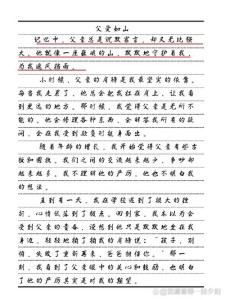 父爱如山
记忆中，父亲总是沉默寡言，却又无比强
大。他就像一座巍峨的山，默默地守护着我，
为我遮风挡雨。
小时候，父亲的肩膀是我最坚实的依靠。
每当我走累了，他总会把我扛在肩上，让我看
到更远的地方。那时候，我觉得父亲是无所不
能的。他会修理家里的一切，会解答我所有的疑
问，会在我受到欺负时挺身而出。
随着年龄的增长，我开始觉得父亲有些古
板和固执。我们之间的交谈越来越少，争吵却
越来越多。我不理解他的严厉，他也不明白我
的想法。
直到有一天，我在学校遇到了很大的挫
折，心情低落到了极点。回到家，本以为会
受到父亲的责备，没想到他只是默默地坐在我
身边，轻轻地拍了拍我的肩膀说：“孩子，别
怕，失败了重新再来，爸爸相信你。”那一
刻，我看到了父亲眼中的关心和鼓励，也明白
了他的严厉其实是对我的期望。